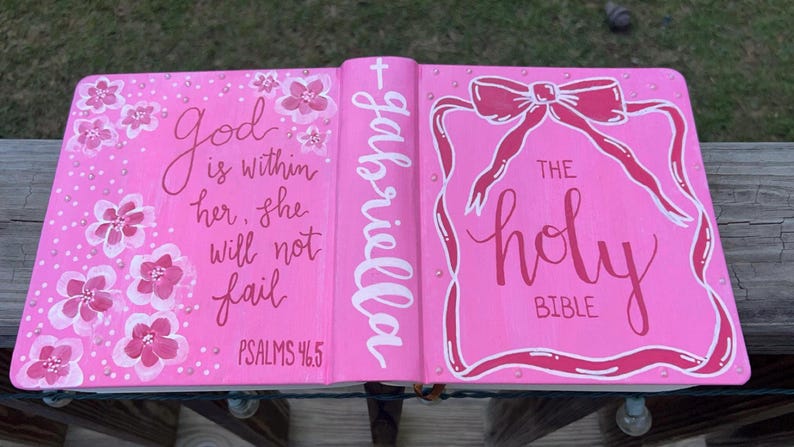 God
is within
her, she
will not
fail
PSALMS 46:5
+gabriella
THE
holy
BIBLE